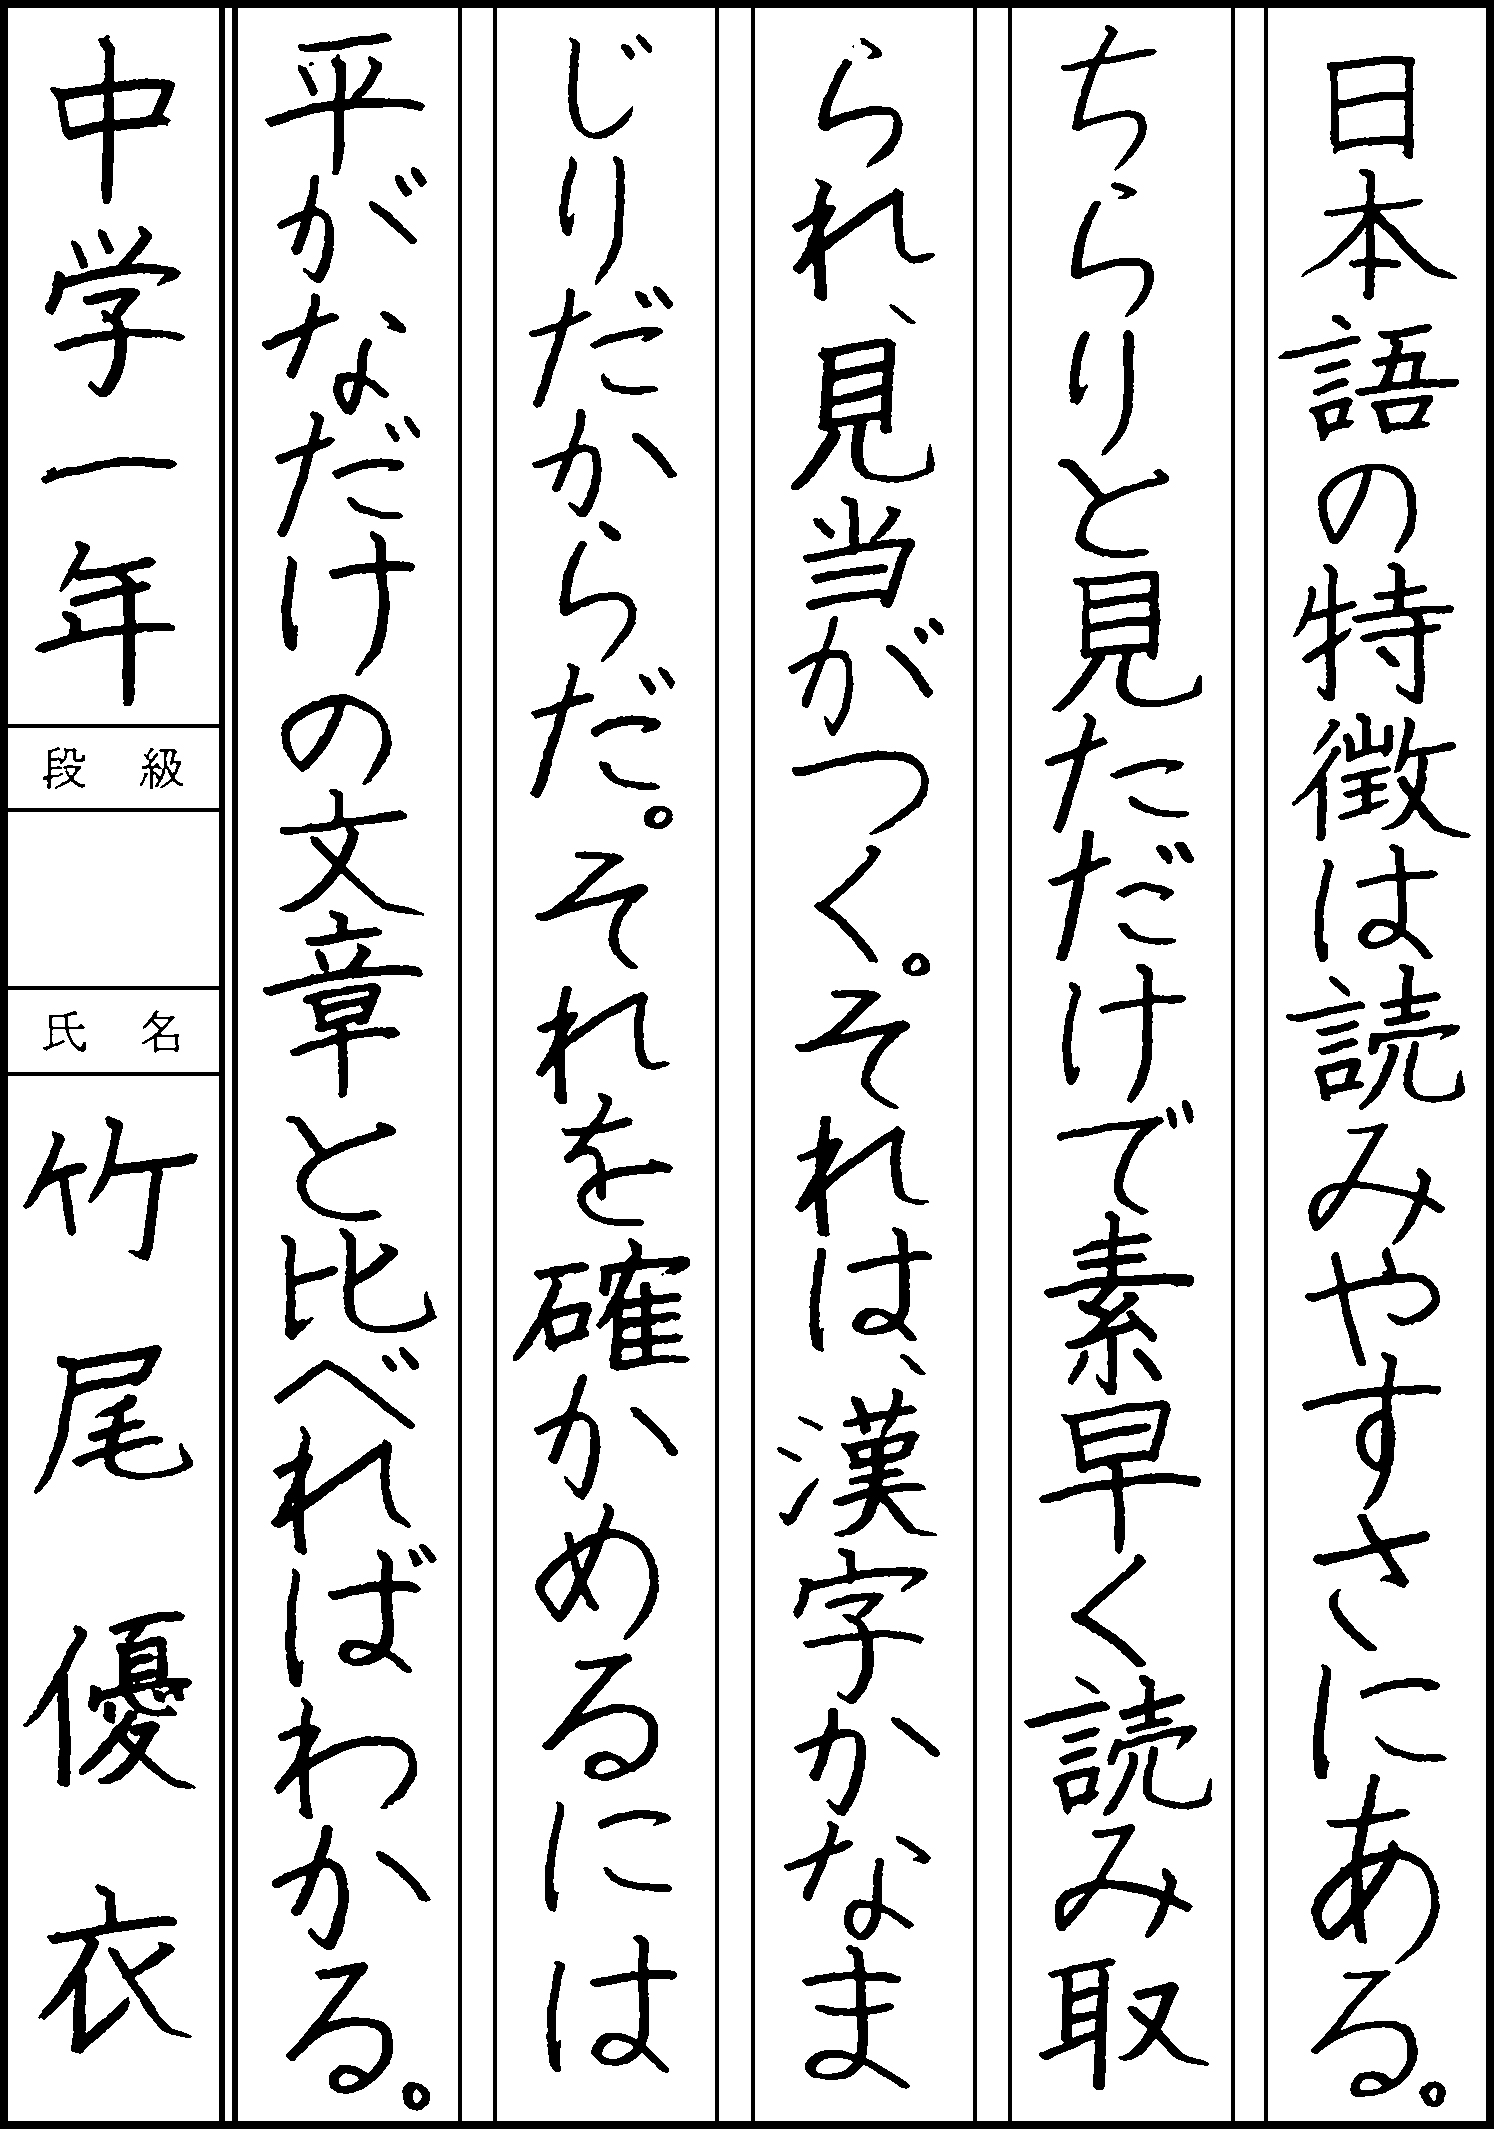 日本語の特徴は読みやすさにある。
ちらりと見ただけで素早く読み取
られ、見当がつく。それは、漢字かなま
じりだからだ。それを確かめるには
平がなだけの文章と比べればわかる。
中学一年
段級
氏名
竹尾優衣